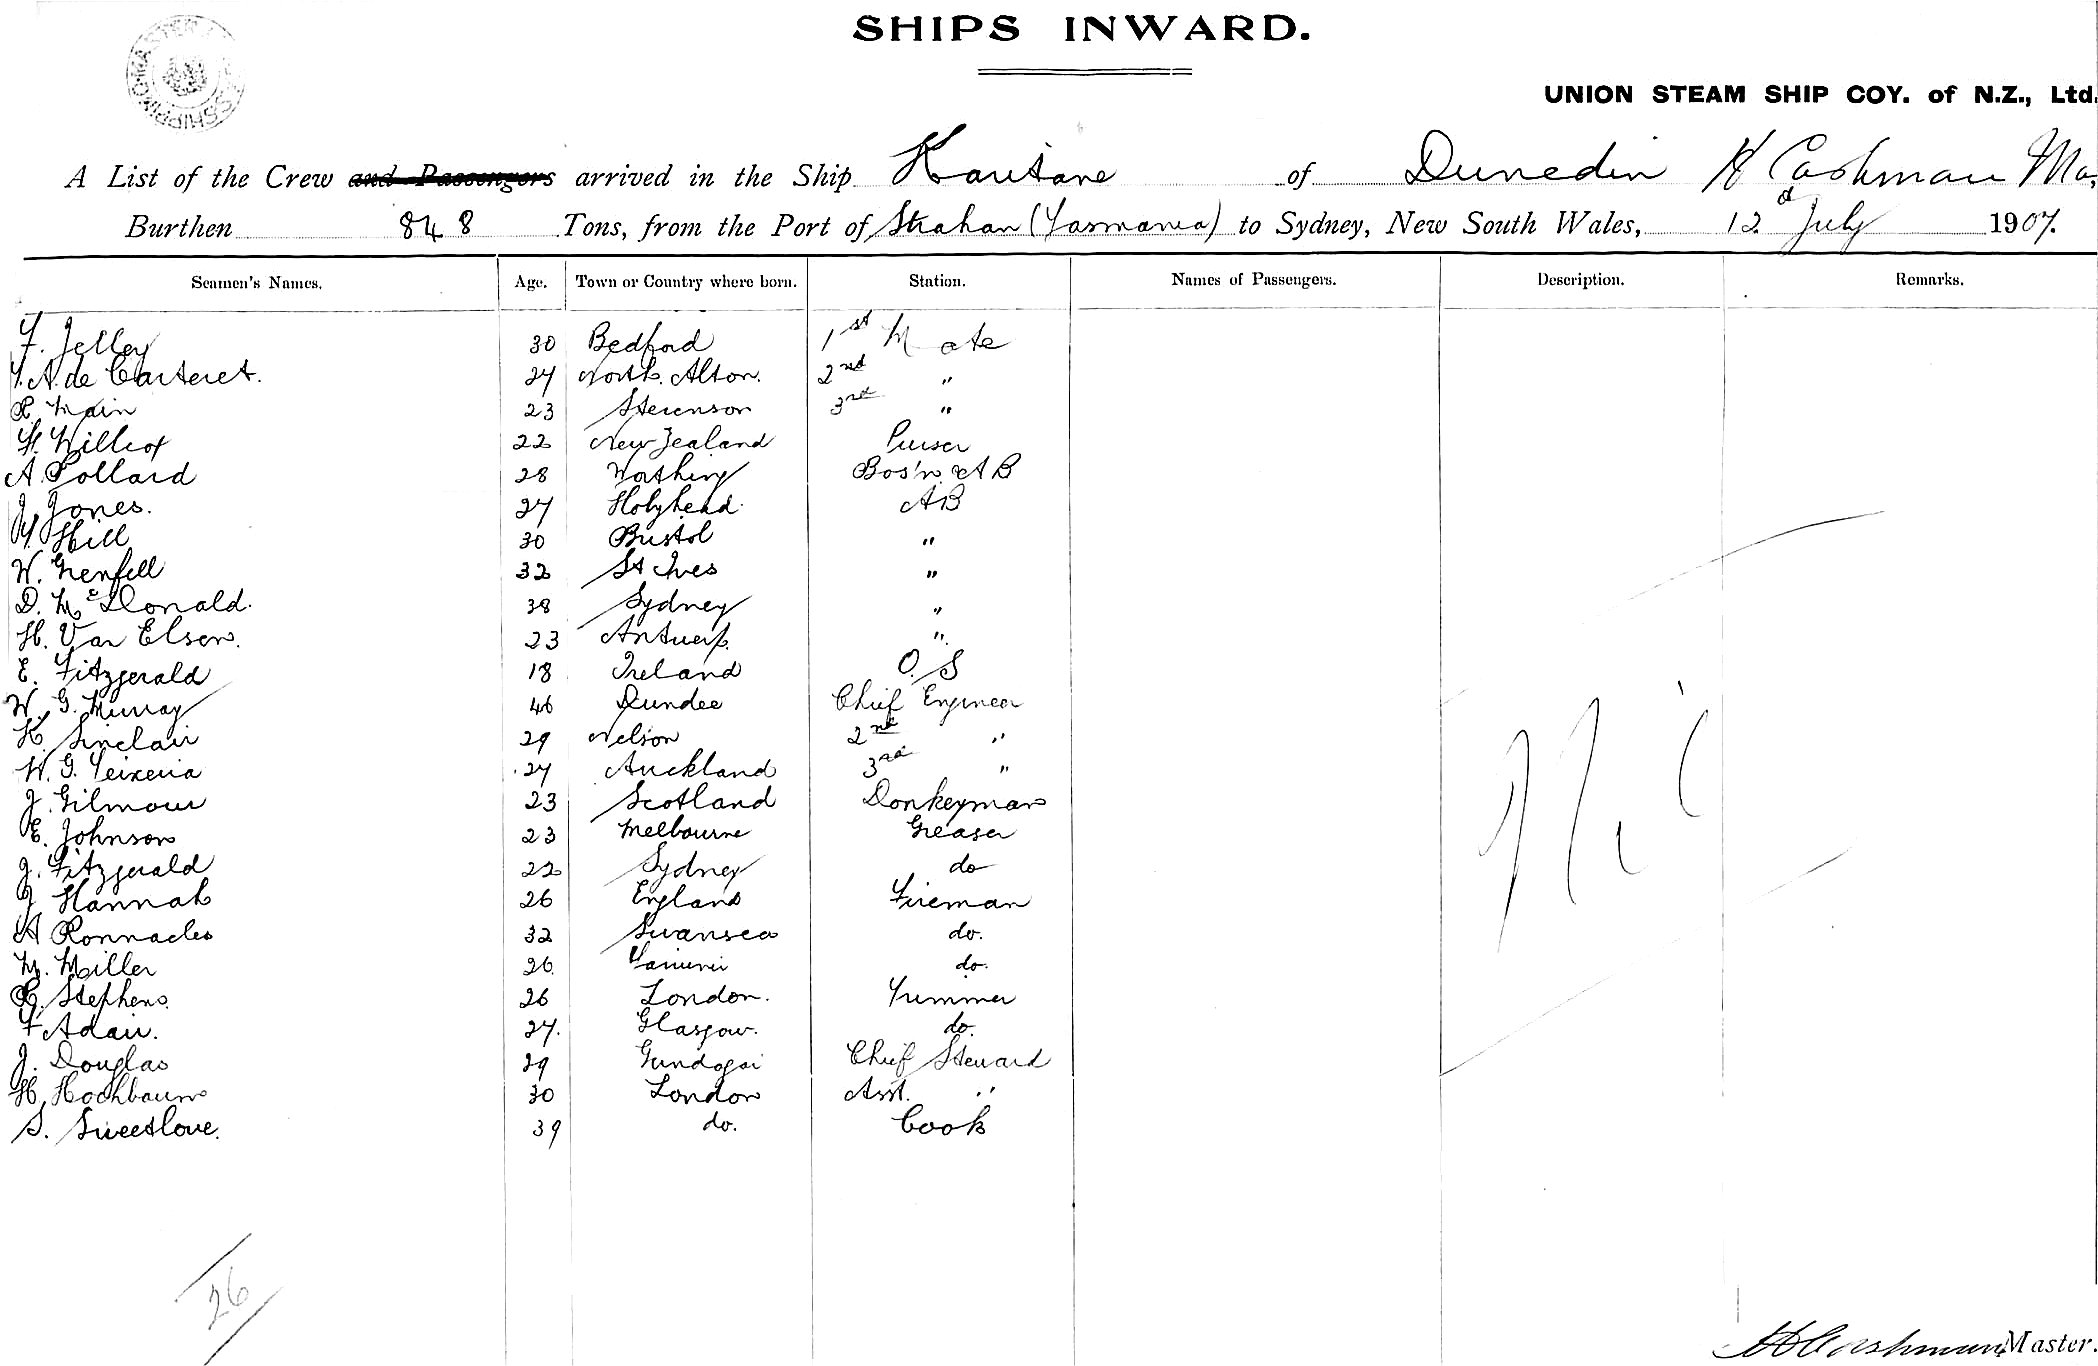 SHIPS INWARD.
UNION STEAM SHIP COY. of N.Z., Ltd.
A List of the Crew and Passengers arrived in the Ship Kauitane of Dunedin H Cashman Ma,
Burthen 848 Tons, from the Port of Strahan (Tasmania) to Sydney, New South Wales, 12d July 1907.
Seamen's Names. Age. Town or Country where born. Station. Names of Passengers. Description. Remarks.
F. Jelley 30 Bedford 1st Mate
de Carteret. 27 North. Alton. 2nd "
R. Main 23 Stevenson 3rd "
H. Willcox 22 New Zealand Purser
A. Pollard 28 Worthing Bos'n & AB
J. Jones. 27 Holyhead. AB
Hill 30 Bristol "
W. Grenfell 32 St Ives "
D. McDonald. 38 Sydney "
H. Van Elsen. 23 Antwerp. "
E. Fitzgerald 18 Ireland O.S
W. G. Murray 46 Dundee Chief Engineer
K. Sinclair 29 Nelson 2nd "
W. G. Teixeria 27 Auckland 3rd "
J. Gilmour 23 Scotland Donkeyman
E. Johnson 23 Melbourne Greaser
J. Fitzgerald 22 Sydney do
J Hannah 26 England Fireman
A Ronnacles 32 Swansea do.
M. Miller 26 do.
R. Stephens. 26 London. Trimmer
F Adair. 27. Glasgow. do.
J. Douglas 29 Gundagai Chief Steward
H. Hochbaum 30 London Asst. "
S. Sweetlove. 39 do. Cook
26
H Cashman Master.